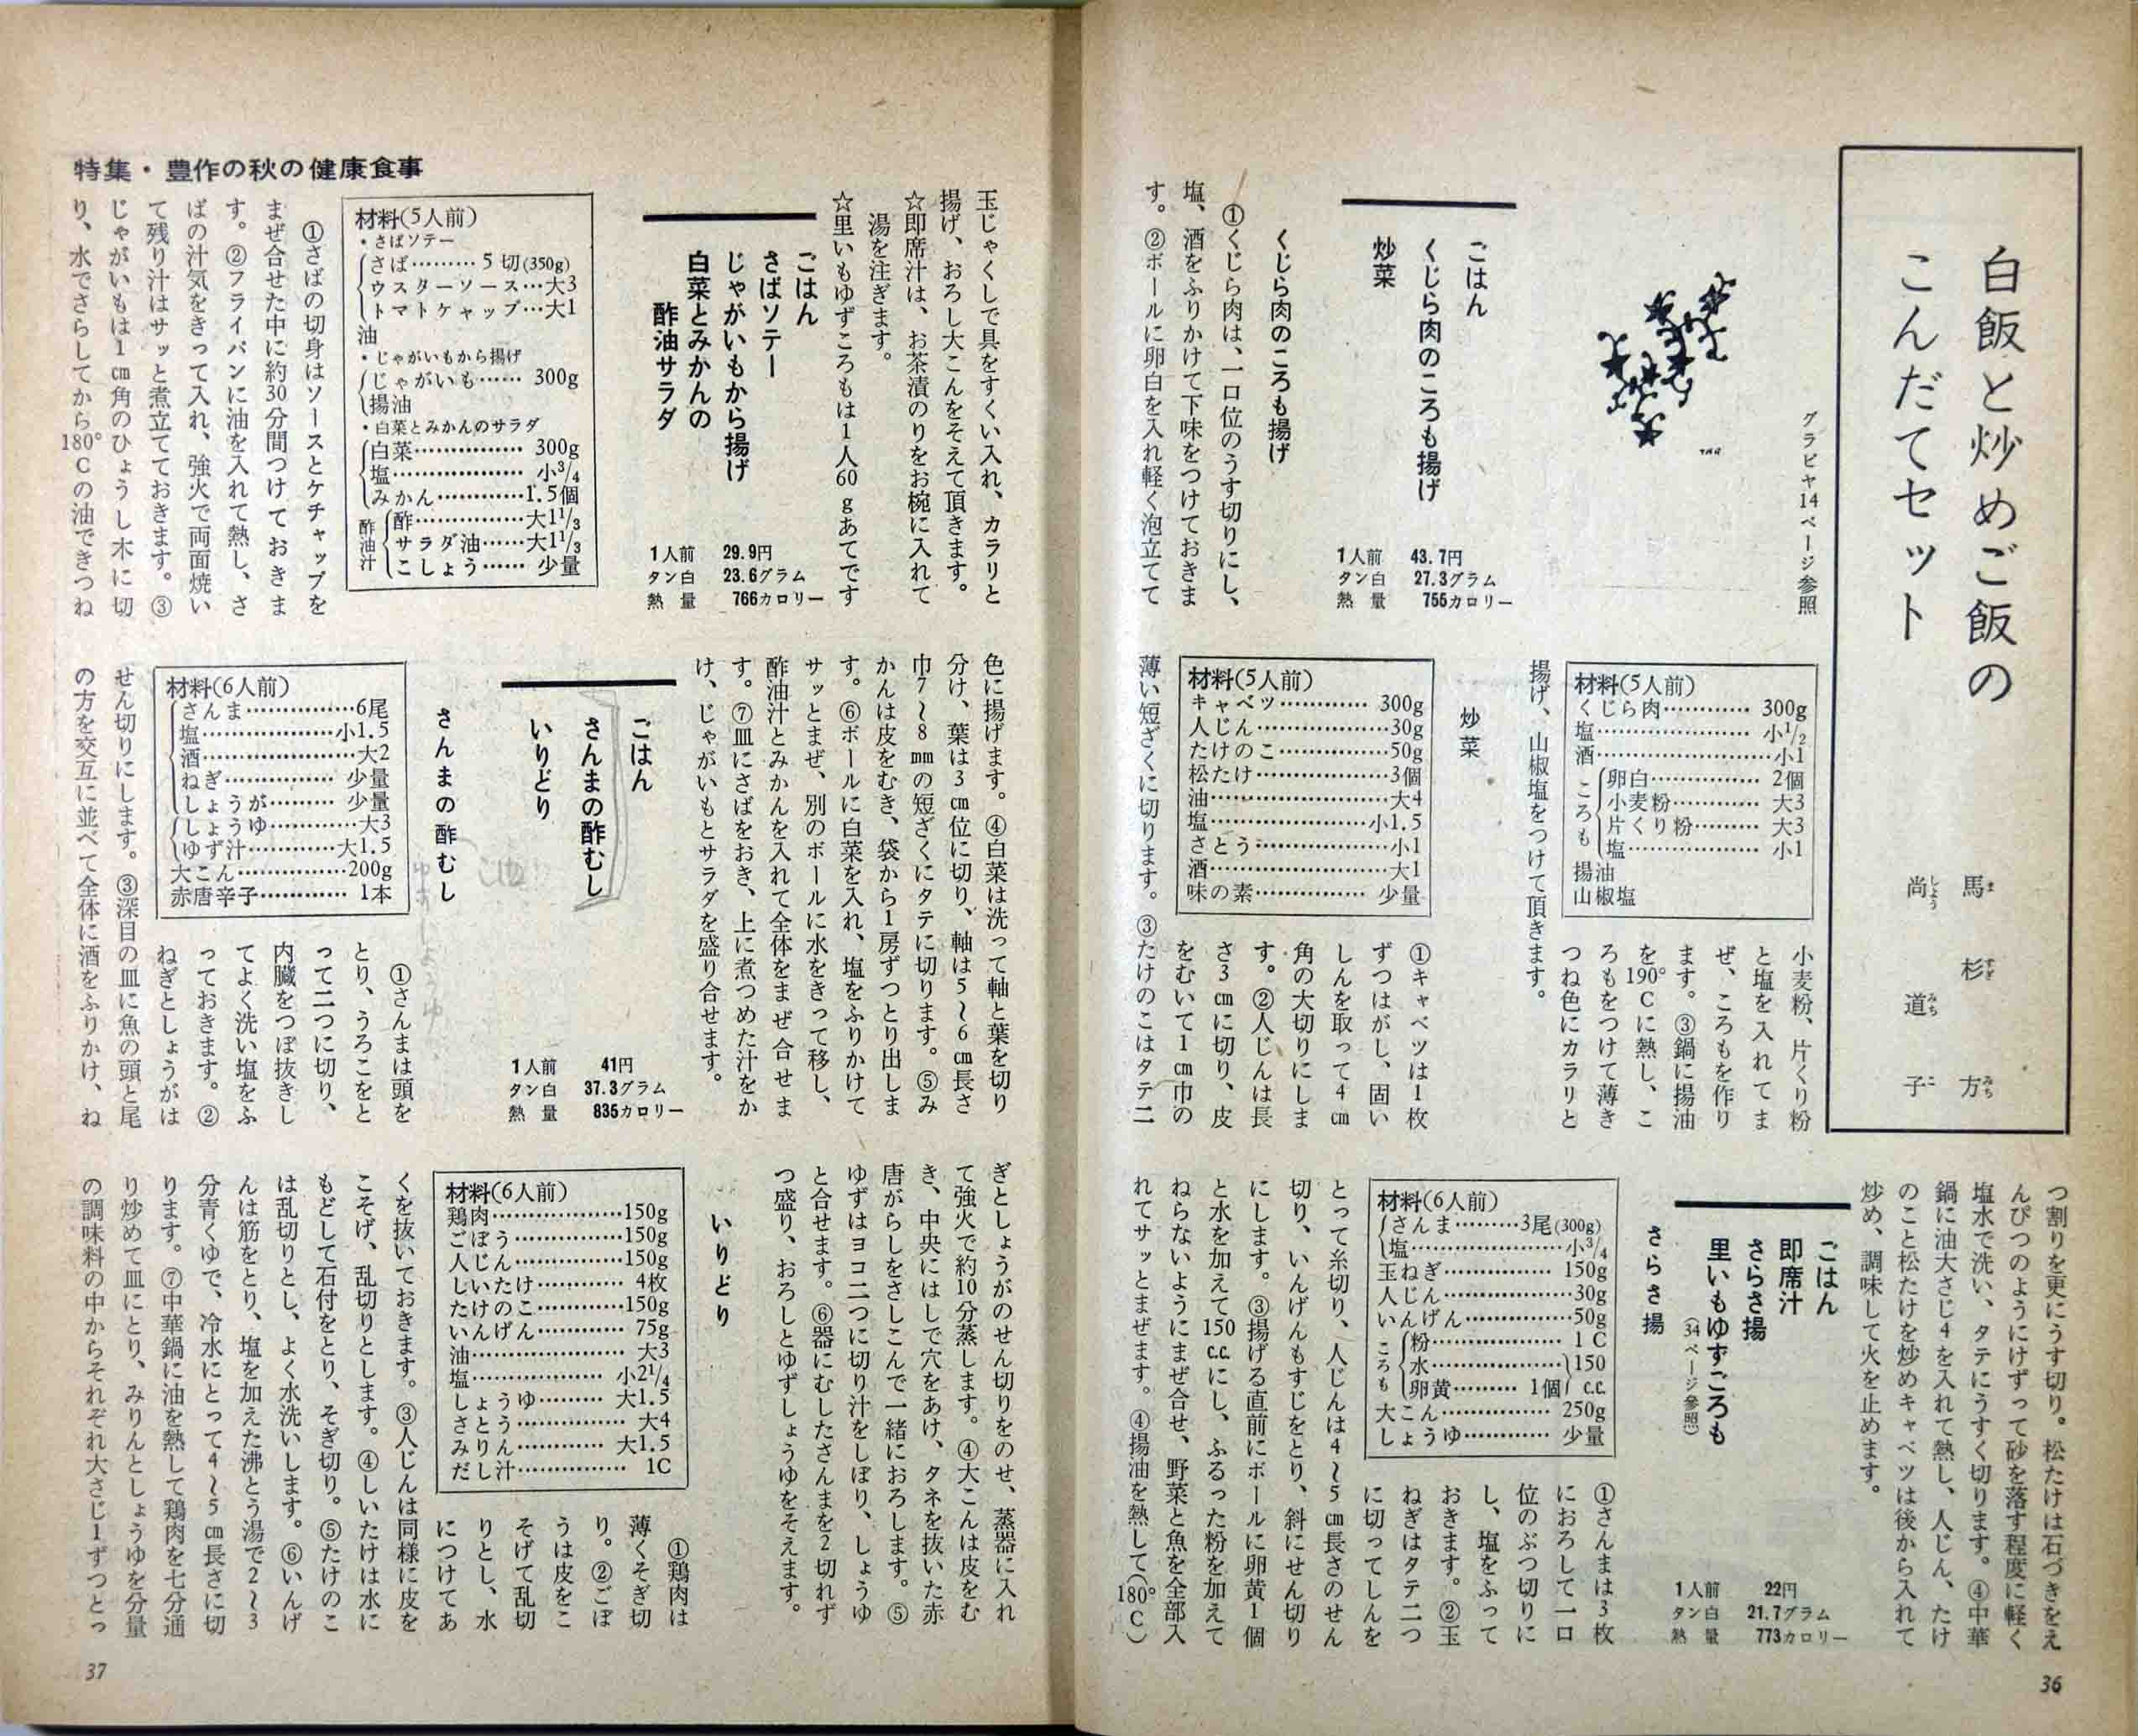 白飯と炒めご飯の
こんだてセット
馬杉方
尚道子
グラビヤ14ページ参照
ごはん
くじら肉のころも揚げ
炒菜
1人前 43.7円
タン白 27.3グラム
熱量 755カロリー
くじら肉のころも揚げ
①くじら肉は、一口位のうす切りにし、
塩、酒をふりかけて下味をつけておきま
す。②ボールに卵白を入れ軽く泡立てて
材料(5人前)
くじら肉………… 300g
塩………………… 小1/2
酒……………………小1
ころも
卵白…………… 2個
小麦粉………… 大3
片くり粉……… 大3
塩……………… 小1
揚油
山椒塩
小麦粉、片くり粉
と塩を入れてま
ぜ、ころもを作り
ます。③鍋に揚油
を190°Cに熱し、こ
ろもをつけて薄き
つね色にカラリと
揚げ、山椒塩をつけて頂きます。
炒菜
材料(5人前)
キャベツ………… 300g
人じん………………30g
たけのこ……………50g
松たけ………………3個
油……………………大4
塩…………………小1.5
さとう………………小1
酒……………………大1
味の素…………… 少量
①キャベツは1枚
ずつはがし、固い
しんを取って4cm
角の大切りにしま
す。②人じんは長
さ3cmに切り、皮
をむいて1cm巾の
薄い短ざくに切ります。③たけのこはタテ二
つ割りを更にうす切り。松たけは石づきをえ
んぴつのようにけずって砂を落す程度に軽く
塩水で洗い、タテにうすく切ります。④中華
鍋に油大さじ4を入れて熱し、人じん、たけ
のこと松たけを炒めキャベツは後から入れて
炒め、調味して火を止めます。
ごはん
即席汁
さらさ揚
里いもゆずころも
(34ページ参照)
1人前 22円
タン白 21.7グラム
熱量 773カロリー
さらさ揚
材料(6人前)
さんま………3尾(300g)
塩…………………小3/4
玉ねぎ…………… 150g
人じん………………30g
いんげん……………50g
ころも
粉……………… 1C
水………………150
卵黄……… 1個 c.c.
大こん…………… 250g
しょうゆ………… 少量
①さんまは3枚
におろして一口
位のぶつ切りに
し、塩をふって
おきます。②玉
ねぎはタテ二つ
に切ってしんを
とって糸切り、人じんは4〜5cm長さのせん
切り、いんげんもすじをとり、斜にせん切り
にします。③揚げる直前にボールに卵黄1個
と水を加えて150c.c.にし、ふるった粉を加えて
ねらないようにまぜ合せ、野菜と魚を全部入
れてサッとまぜます。④揚油を熱して(180°C)
36
玉じゃくしで具をすくい入れ、カラリと
揚げ、おろし大こんをそえて頂きます。
☆即席汁は、お茶漬のりをお椀に入れて
湯を注ぎます。
☆里いもゆずころもは1人60gあてです
ごはん
さばソテー
じゃがいもから揚げ
白菜とみかんの
酢油サラダ
1人前 29.9円
タン白 23.6グラム
熱量 766カロリー
材料(5人前)
・さばソテー
さば……… 5切(350g)
ウスターソース…大3
トマトケチャップ…大1
油
・じゃがいもから揚げ
じゃがいも…… 300g
揚油
・白菜とみかんのサラダ
白菜…………… 300g
塩……………… 小3/4
みかん…………1.5個
酢油汁
酢……………大1 1/3
サラダ油……大1 1/3
こしょう…… 少量
特集・豊作の秋の健康食事
①さばの切身はソースとケチャップを
まぜ合せた中に約30分間つけておきま
す。②フライパンに油を入れて熱し、さ
ばの汁気をきって入れ、強火で両面焼い
て残り汁はサッと煮立てておきます。③
じゃがいもは1cm角のひょうし木に切
り、水でさらしてから180°Cの油できつね
色に揚げます。④白菜は洗って軸と葉を切り
分け、葉は3cm位に切り、軸は5〜6cm長さ
巾7〜8mmの短ざくにタテに切ります。⑤み
かんは皮をむき、袋から1房ずつとり出しま
す。⑥ボールに白菜を入れ、塩をふりかけて
サッとまぜ、別のボールに水をきって移し、
酢油汁とみかんを入れて全体をまぜ合せま
す。⑦皿にさばをおき、上に煮つめた汁をか
け、じゃがいもとサラダを盛り合せます。
ごはん
さんまの酢むし
いりどり
1人前 41円
タン白 37.3グラム
熱量 835カロリー
さんまの酢むし
材料(6人前)
さんま……………6尾
塩………………小1.5
酒…………………大2
ねぎ…………… 少量
しょうが……… 少量
しょうゆ…………大3
ゆず汁…………大1.5
大こん……………200g
赤唐辛子………… 1本
①さんまは頭を
とり、うろこをと
って二つに切り、
内臓をつぼ抜きし
てよく洗い塩をふ
っておきます。②
ねぎとしょうがは
せん切りにします。③深目の皿に魚の頭と尾
の方を交互に並べて全体に酒をふりかけ、ね
ぎとしょうがのせん切りをのせ、蒸器に入れ
て強火で約10分蒸します。④大こんは皮をむ
き、中央にはしで穴をあけ、タネを抜いた赤
唐がらしをさしこんで一緒におろします。⑤
ゆずはヨコ二つに切り汁をしぼり、しょうゆ
と合せます。⑥器にむしたさんまを2切れず
つ盛り、おろしとゆずしょうゆをそえます。
いりどり
材料(6人前)
鶏肉………………150g
ごぼう……………150g
人じん……………150g
しいたけ………… 4枚
たけのこ…………150g
いんげん………… 75g
油………………… 大3
塩……………… 小2 1/4
しょうゆ……… 大1.5
さとう…………… 大4
みりん………… 大1.5
だし汁…………… 1C
①鶏肉は
薄くそぎ切
り。②ごぼ
うは皮をこ
そげて乱切
りとし、水
につけてあ
くを抜いておきます。③人じんは同様に皮を
こそげ、乱切りとします。④しいたけは水に
もどして石付をとり、そぎ切り。⑤たけのこ
は乱切りとし、よく水洗いします。⑥いんげ
んは筋をとり、塩を加えた沸とう湯で2〜3
分青くゆで、冷水にとって4〜5cm長さに切
ります。⑦中華鍋に油を熱して鶏肉を七分通
り炒めて皿にとり、みりんとしょうゆを分量
の調味料の中からそれぞれ大さじ1ずつとっ
37